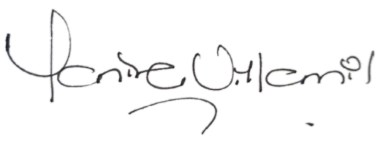 Yanire Villamil